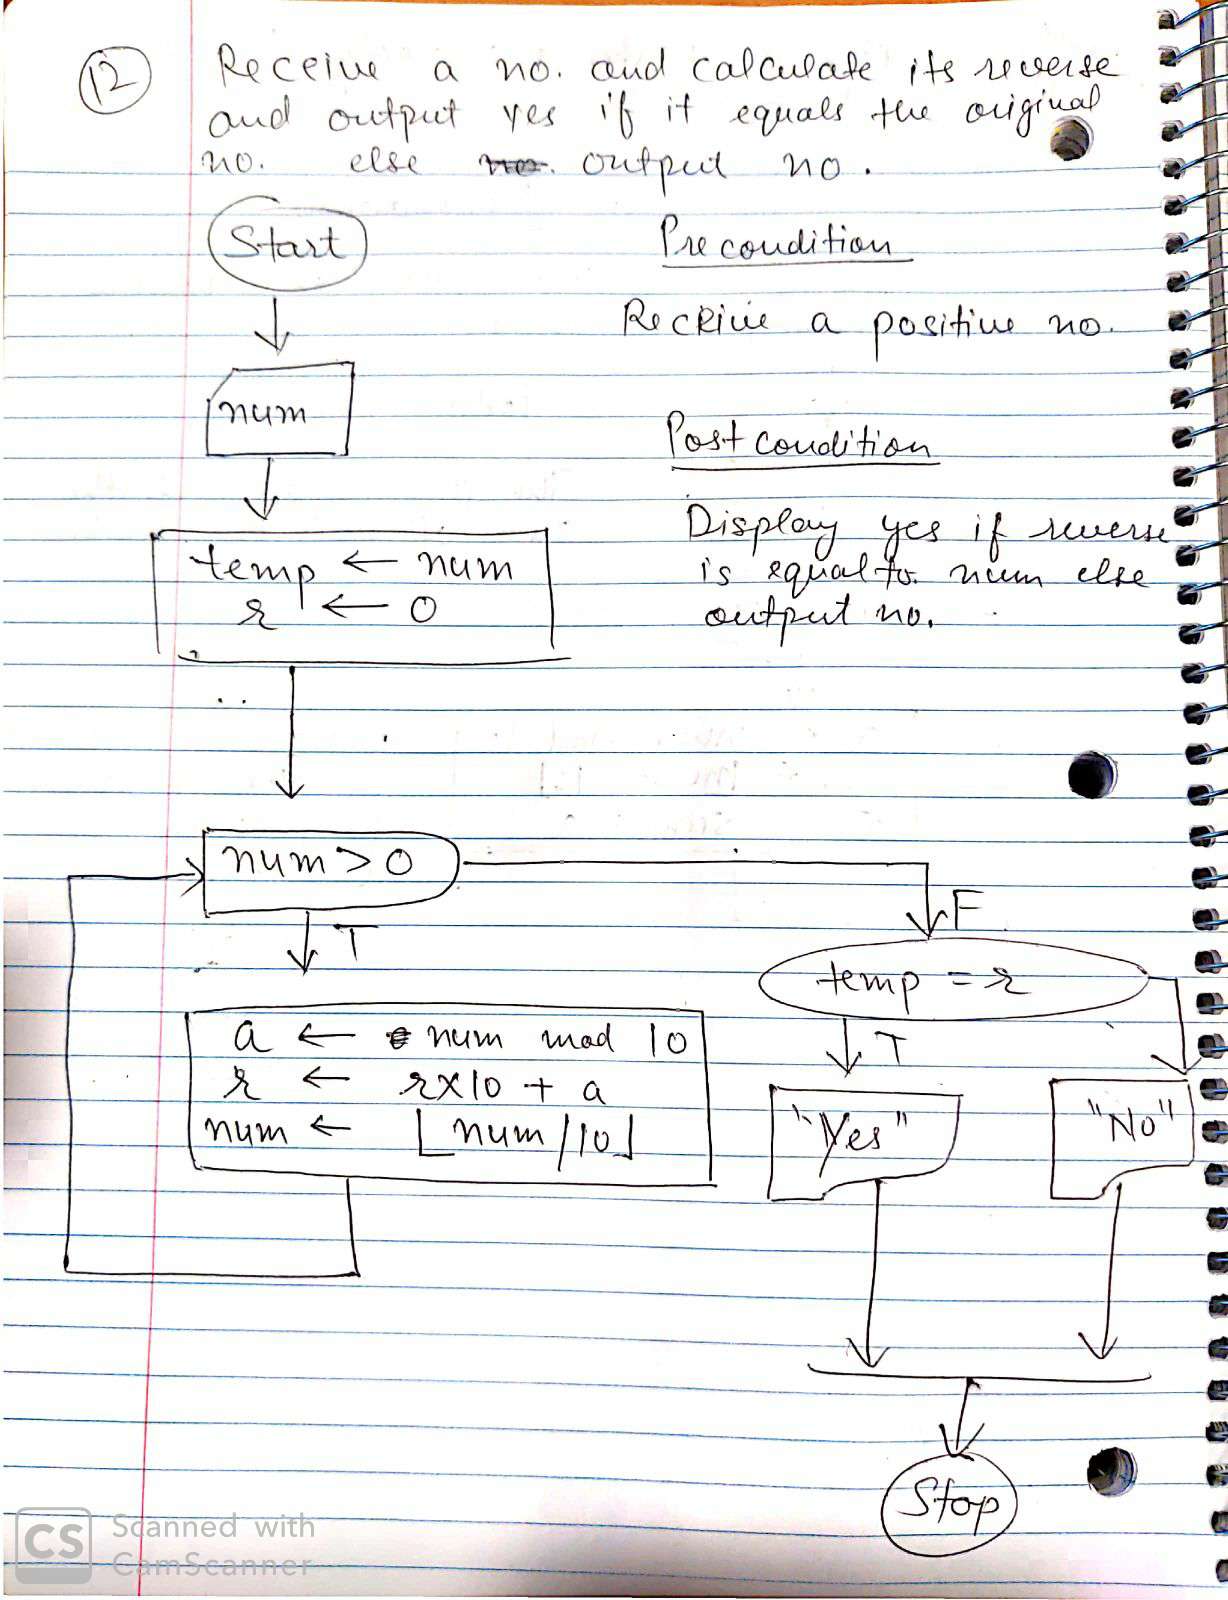 12
Receive a no. and calculate its reverse
and output yes if it equals the original
no. else no. output no.
Start
Precondition
Receive a positive no.
num
Postcondition
temp ← num
r ← 0
Display yes if reverse
is equal to num else
output no.
num > 0
T
F
temp = r
T
a ← num mod 10
r ← r×10 + a
num ← ⌊num/10⌋
"Yes"
"No"
Stop
CS
Scanned with
CamScanner